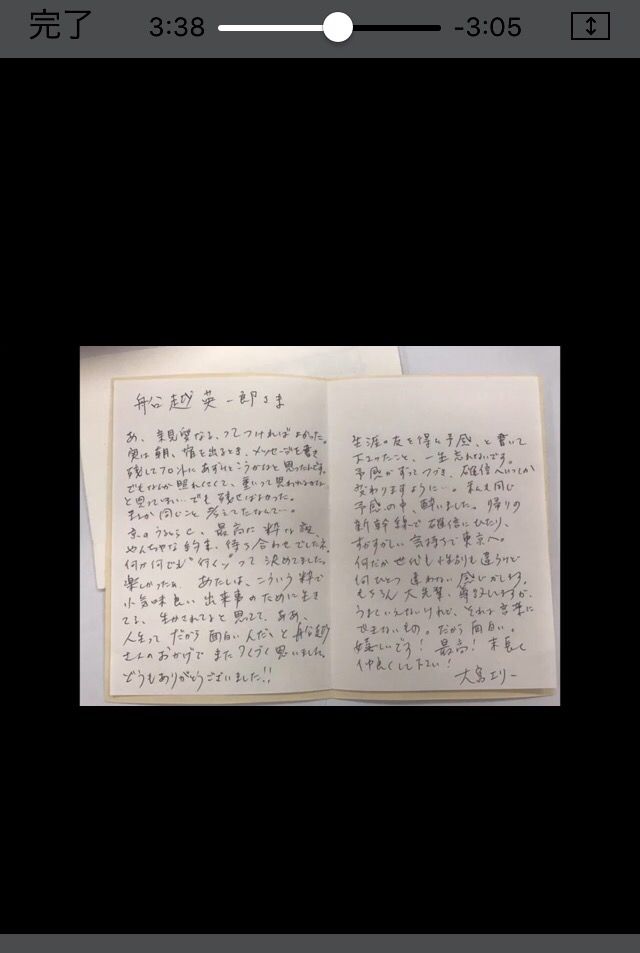 完了 3:38 -3:05
船谷越英一郎さま
あ、親見質なる、ってつければよかった。
実は朝、宿を出るとき、メッセージを書き
残してフロントにあずけとこうかなと思ったんです。
でもなんか照れくさくて、重いって思われるかな
と思ってしまい…でも残せばよかった。
まさか同じこと考えてたなんて…。
京の
最高に粋な
やんちゃな約束、待ち合わせでしたね。
何が何でも“行くゾ”って決めてました。
楽しかったぁ、あたしは、こういう粋で
小気味良い出来事のために生き
てる、生かされてると思ってて、ああ、
人生ってだから面白いんだ、と船谷越
さんのおかげでまたつくづく思いました。
どうもありがとうございました!!
生涯の友を得る予感、と書いて
下さったこと、一生忘れないです。
予感がずっとつづき、確信へいつしか
変わりますように…。私も同じ
予感の中、酔いました。帰りの
新幹線で確信にひたり、
すがすがしい気持ちで東京へ。
何だか世代も性別も違うけど
何ひとつ違わない感じがします。
もちろん大先輩、尊敬しますが、
うまくいえないけれど、それは言葉に
できないもの。だから面白い。
嬉しいです!最高!末長く
仲良くして下さい!
大宮エリー